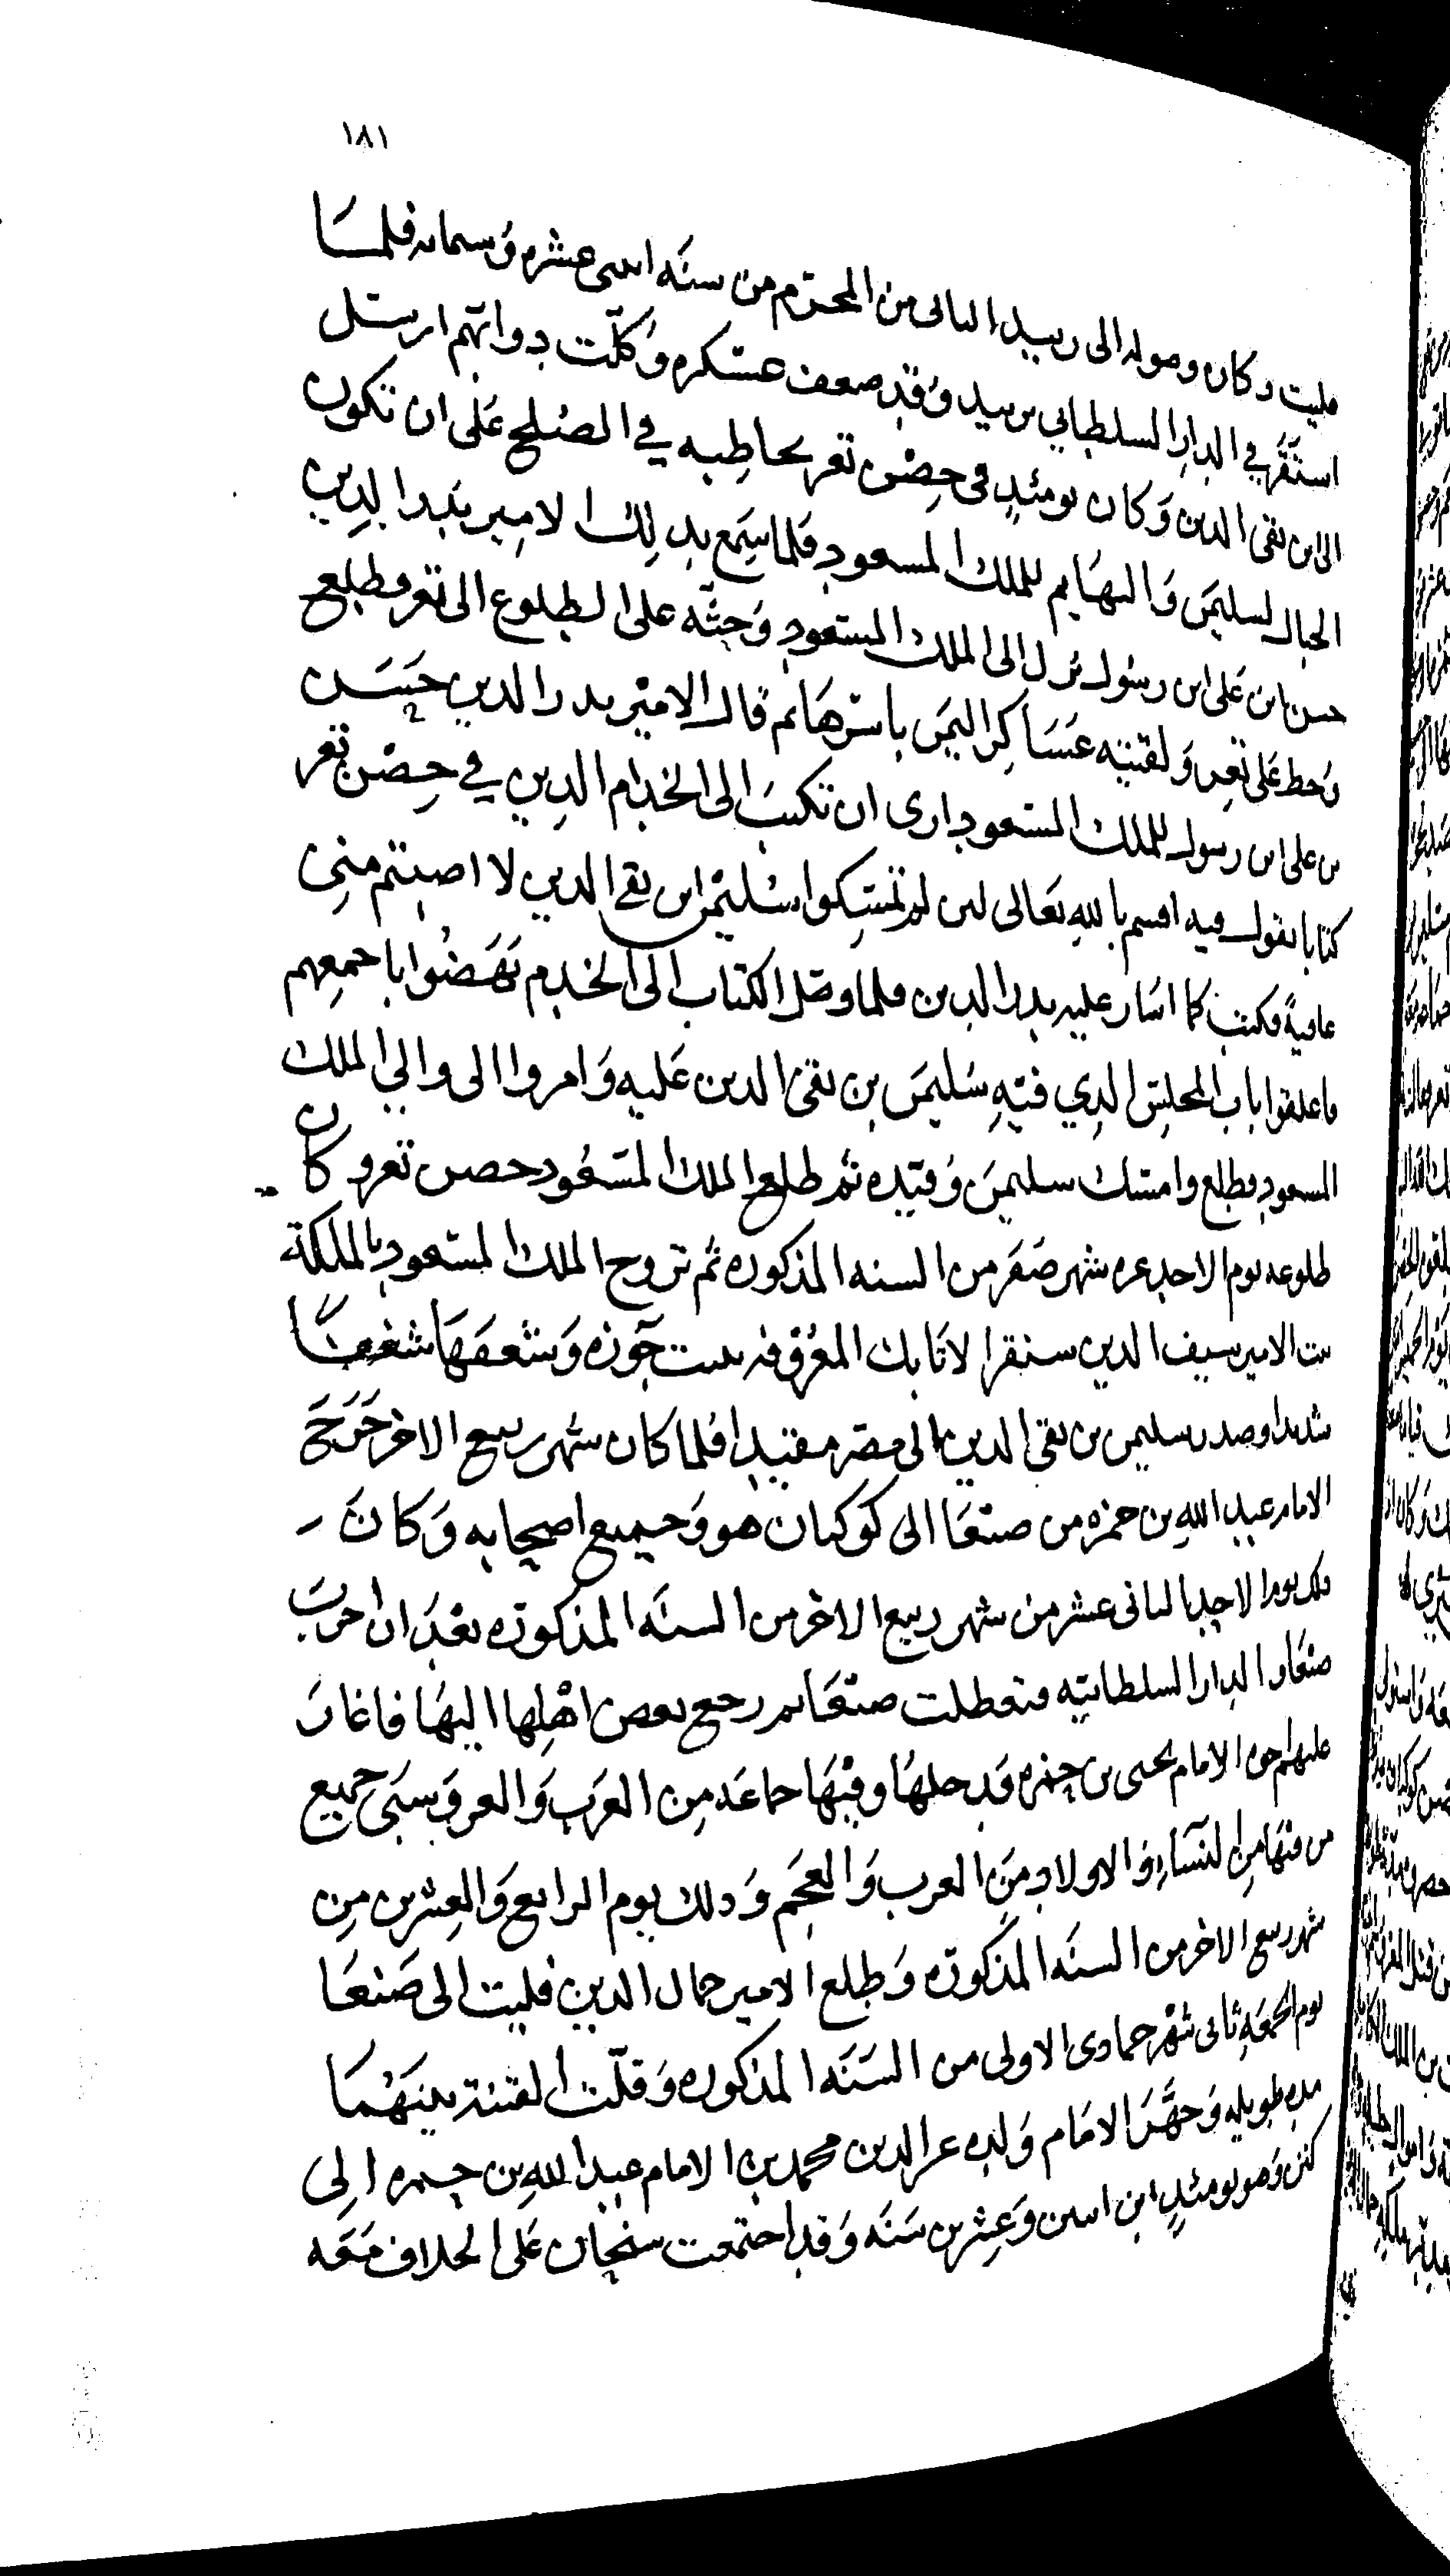 ١٨١
فليت وكان وصوله الى زبيد الثاني من المحرم من سنه اثنى عشره وستمايه فلما
استقر في الدار السلطاني بزبيد وقد ضعف عسكره وكلت دوابهم ارسل
الى ابن تقى الدين وكان يومئذ في حصن تعز يخاطبه في الصلح على ان تكون
الجبال لسليمن والتهايم للملك المسعود فلما سمع بذلك الامير بدر الدين
حسن بن على ابن رسول نزل الى الملك المسعود وحثه على الطلوع الى تعز فطلع
وحط على تعز ولقيته عساكر اليمن باسرها ثم قال الامير بدر الدين حسن
بن على ابن رسول للملك المسعود ارى ان تكتب الى الخدام الذين في حصن تعز
كتابا تقول فيه اقسم بالله تعالى لئن لم تمسكوا سليمن ابن تقى الدين لا اصبتم منى
عافية فكتب كما اشار عليه بدر الدين فلما وصل الكتاب الى الخدم نهضوا باجمعهم
فاغلقوا باب المجلس الذي فيه سليمن بن تقى الدين عليه وامروا الى والي الملك
المسعود فطلع وامسك سليمن وقيده ثم طلع الملك المسعود حصن تعز وكان
طلوعه يوم الاحد غره شهر صفر من السنه المذكوره ثم تزوج الملك المسعود بالملكة
بنت الامير سيف الدين سنقر الاتابك المعروفه ببنت جوزه وشعفها شغفا
شديدا وصدر سليمن بن تقى الدين الى مصر مقيدا فلما كان شهر ربيع الاخر خرج
الامام عبد الله بن حمزه من صنعا الى كوكبان هو وجميع اصحابه وكان
ذلك يوم الاحد الثانى عشر من شهر ربيع الاخر من السنه المذكوره بعد ان اخرب
صنعا والدار السلطانيه فتعطلت صنعا ثم رجع بعض اهلها اليها فاغار
عليهم اخو الامام يحيى بن حمزه فدخلها وفيها جماعه من العرب والغز وسبى جميع
من فيها من النسآء والاولاد من العرب والعجم وذلك يوم الرابع والعشرين من
شهر ربيع الاخر من السنه المذكوره وطلع الامير جمال الدين فليت الى صنعا
يوم الجمعه ثانى شهر جمادى الاولى من السنه المذكوره وقلت الفتنة بينهما
مده طويله وجهز الامام ولده عز الدين محمد بن الامام عبد الله بن حمزه الى
كنن وهو يومئذ ابن اثنين وعشرين سنه وقد اجتمعت سنحان على الخلاف معه